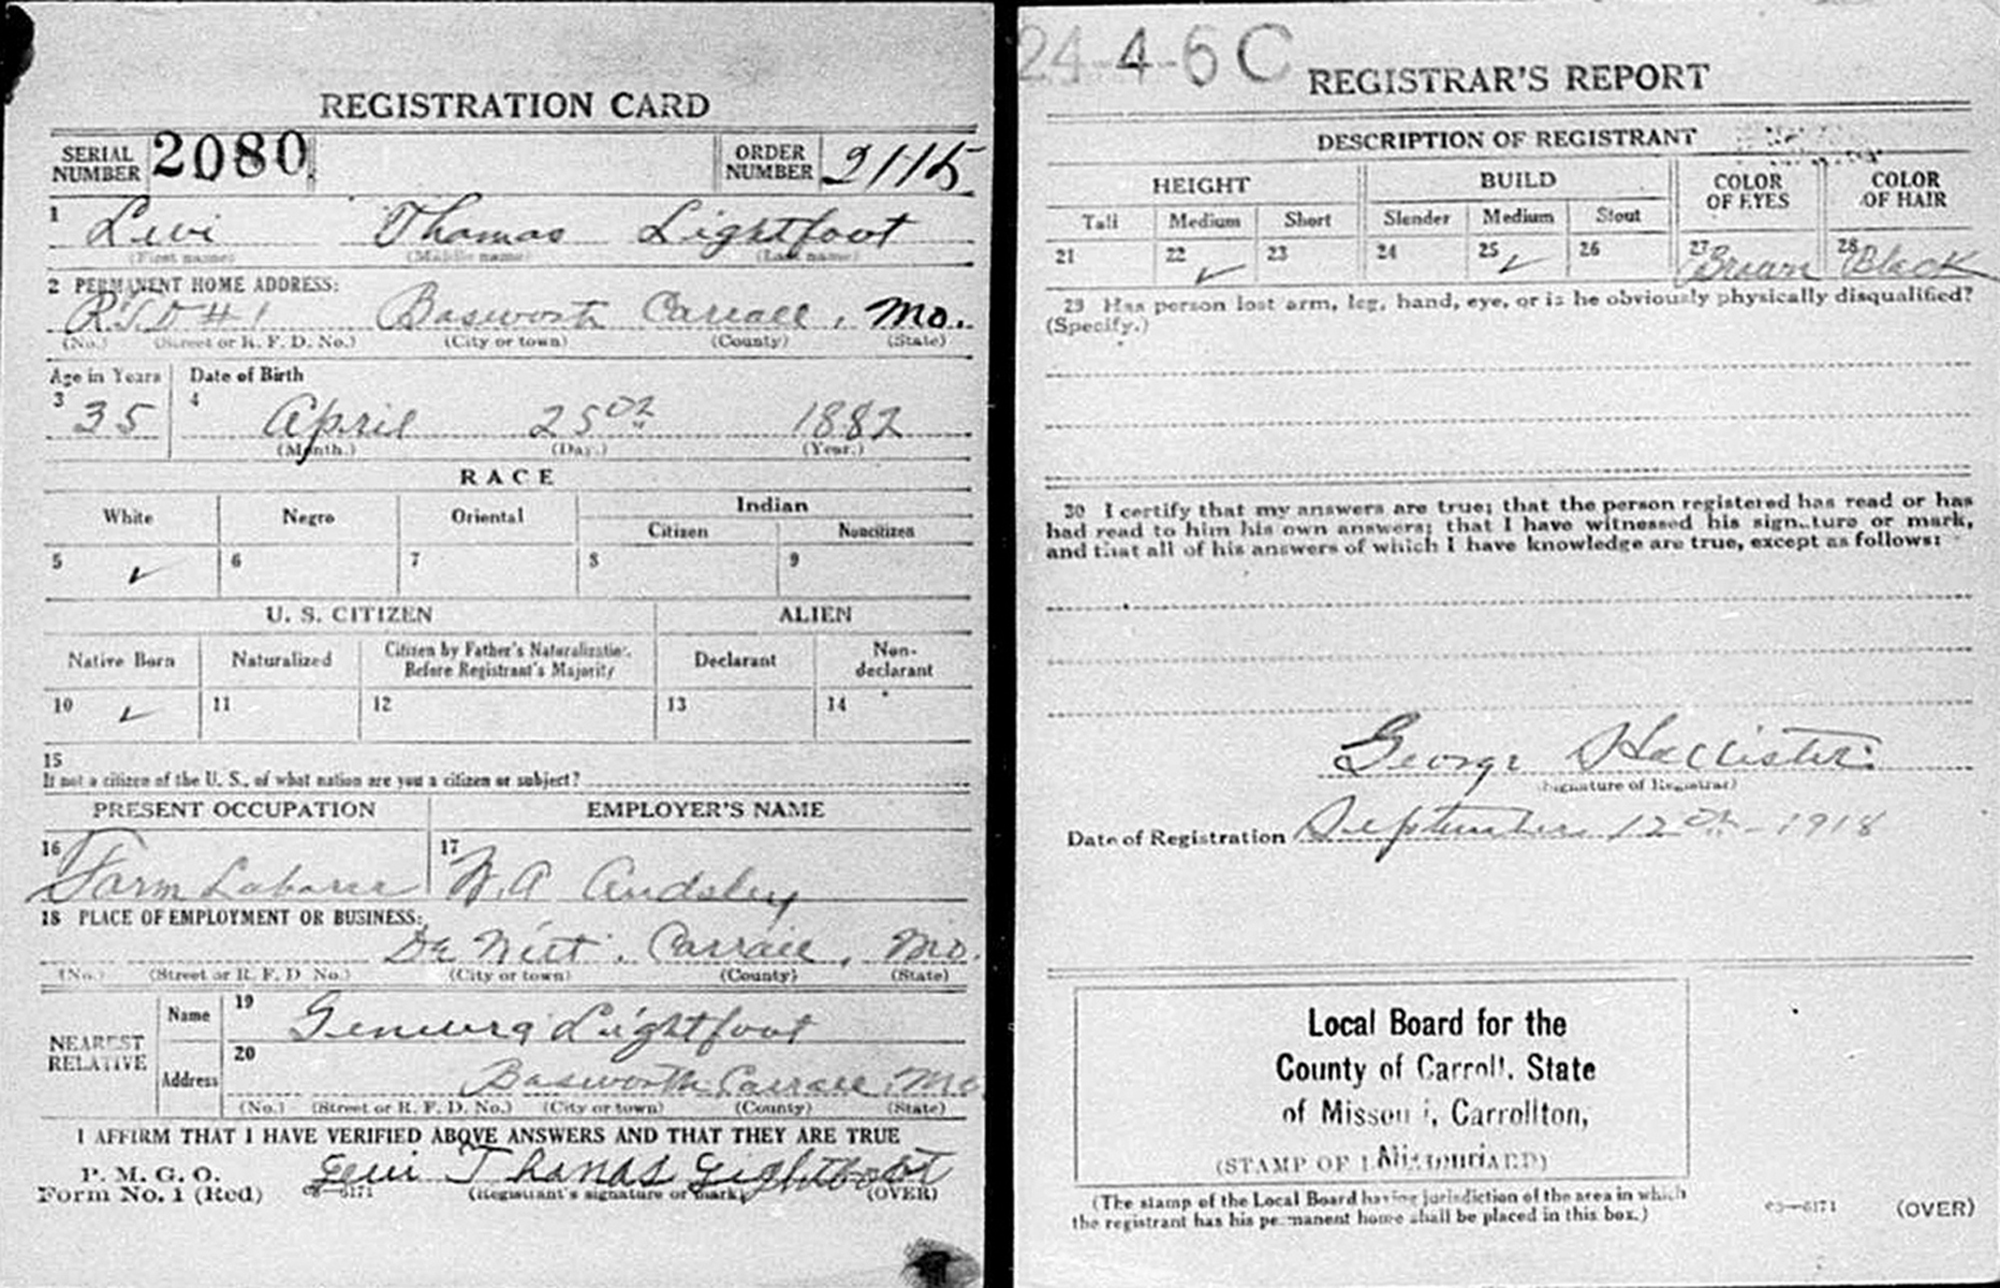 REGISTRATION CARD
SERIAL NUMBER 2080 ORDER NUMBER 2115
1 Levi Thomas Lightfoot
(First name) (Middle name) (Last name)
2 PERMANENT HOME ADDRESS:
R.F.D #1 Bosworth Carroll, Mo.
(No.) (Street or R. F. D. No.) (City or town) (County) (State)
Age in Years Date of Birth
3 35 4 April 25th 1882
(Month.) (Day.) (Year.)
RACE
White Negro Oriental Indian
Citizen Noncitizen
5 ✓ 6 7 8 9
U. S. CITIZEN ALIEN
Native Born Naturalized Citizen by Father's Naturalization Before Registrant's Majority Declarant Non-declarant
10 ✓ 11 12 13 14
15
If not a citizen of the U. S., of what nation are you a citizen or subject?
PRESENT OCCUPATION EMPLOYER'S NAME
16 Farm Laborer 17 W.A Audsley
18 PLACE OF EMPLOYMENT OR BUSINESS:
De Witt, Carroll, Mo.
(No.) (Street or R. F. D. No.) (City or town) (County) (State)
NEAREST RELATIVE
Name 19 Lightfoot
Address 20 Bosworth Carroll, Mo
(No.) (Street or R. F. D. No.) (City or town) (County) (State)
I AFFIRM THAT I HAVE VERIFIED ABOVE ANSWERS AND THAT THEY ARE TRUE
P. M. G. O.
Form No. 1 (Red) Levi Thomas Lightfoot
(Registrant's signature or mark) (OVER)
24-4-6 C
REGISTRAR'S REPORT
DESCRIPTION OF REGISTRANT
HEIGHT BUILD COLOR OF EYES COLOR OF HAIR
Tall Medium Short Slender Medium Stout
21 22 ✓ 23 24 25 ✓ 26 27 Brown 28 Black
29 Has person lost arm, leg, hand, eye, or is he obviously physically disqualified?
(Specify.)
30 I certify that my answers are true; that the person registered has read or has
had read to him his own answers; that I have witnessed his signature or mark,
and that all of his answers of which I have knowledge are true, except as follows:
George Hollister
(Signature of Registrar)
Date of Registration September 12th - 1918
Local Board for the
County of Carroll, State
of Missouri, Carrollton,
Missouri
(The stamp of the Local Board having jurisdiction of the area in which
the registrant has his permanent home shall be placed in this box.)
03—6171 (OVER)